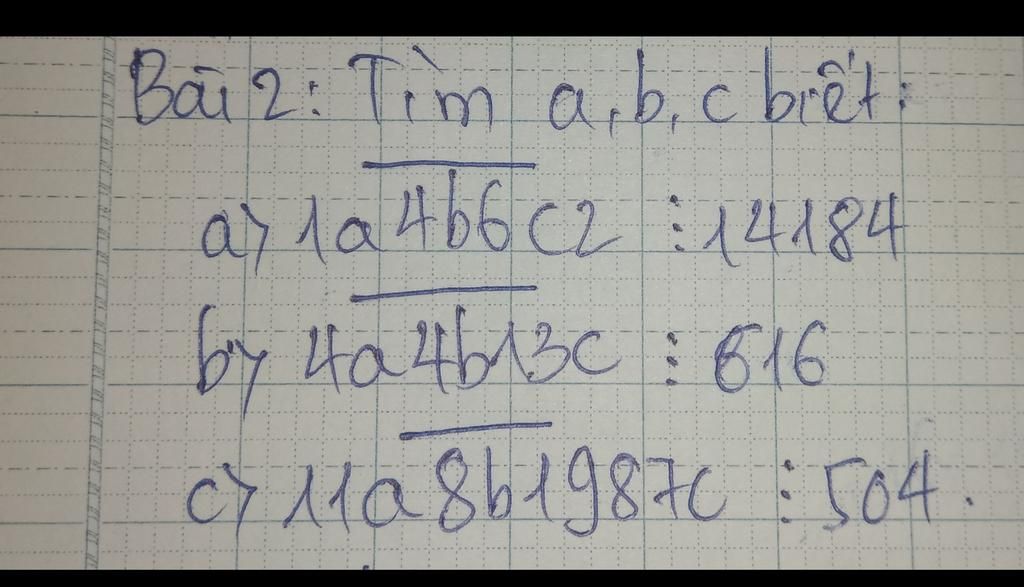 Bài 2: Tìm a, b, c biết:
a) 1a4b6c2 ⋮ 14184
b) 4a4b13c ⋮ 616
c) 11a8b1987c ⋮ 504.